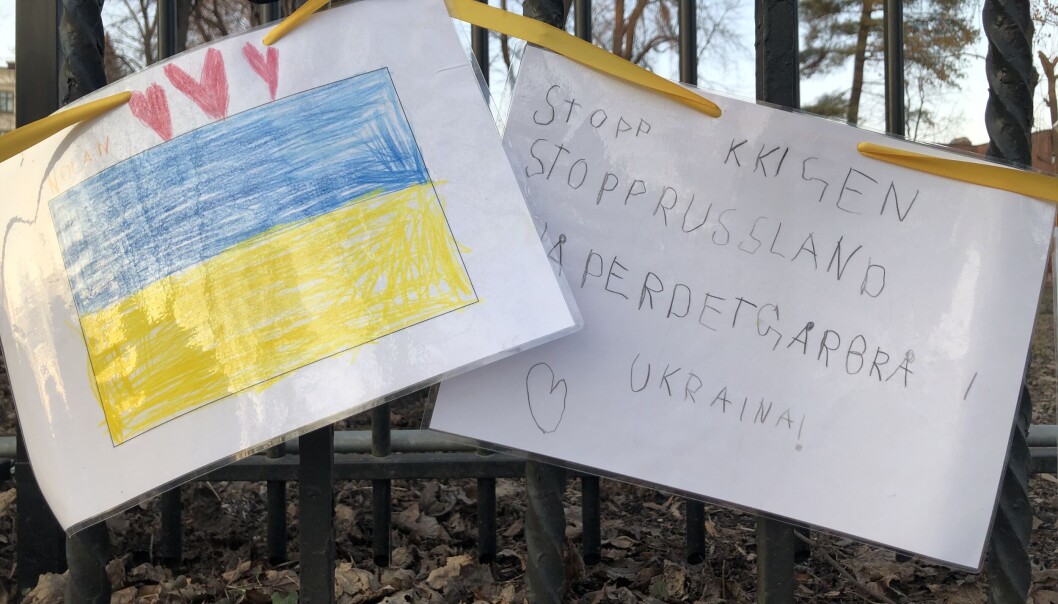 NOLAN
STOPP KKIGEN
STOPPRUSSLAND
HÅPERDETGÅRBRA I
UKRAINA!